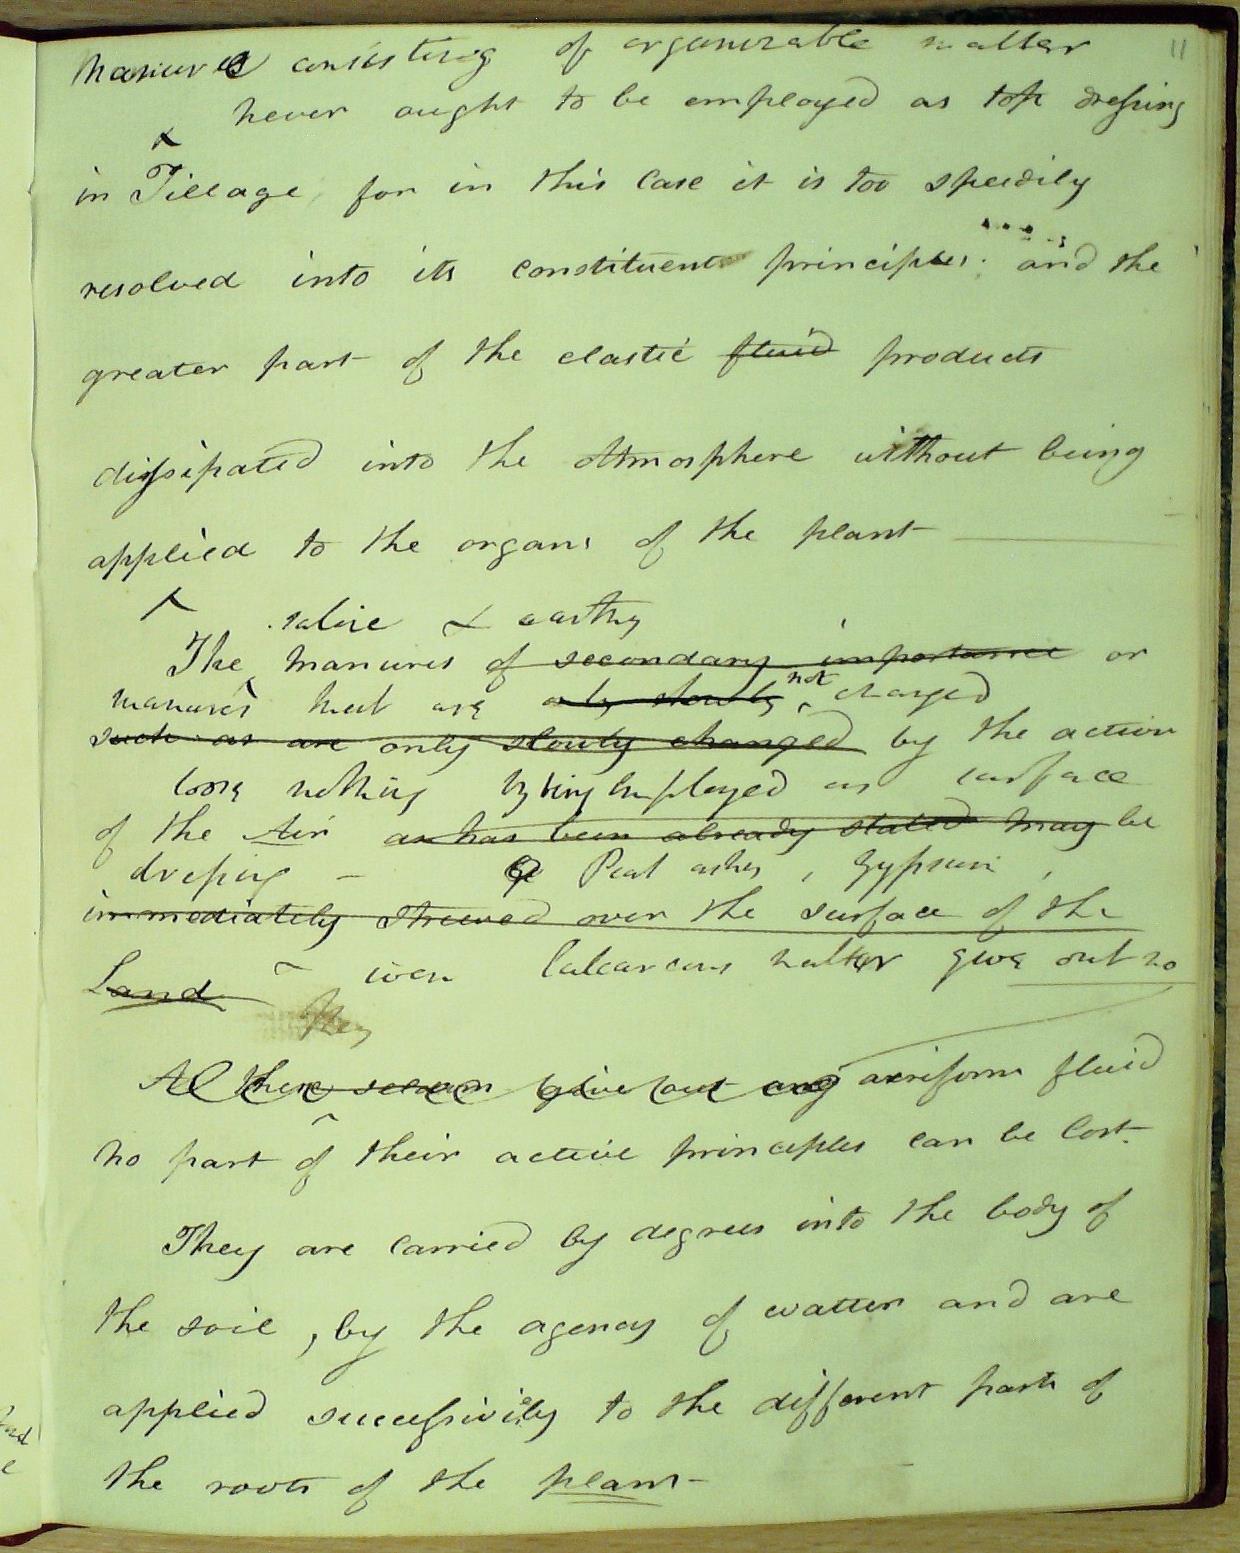 11
Manures consisting of organizable matter
never ought to be employed as top dressing
in Tillage, for in this case it is too speedily
resolved into its constituent principles. and the
greater part of the elastic fluid products
dissipated into the Atmosphere without being
applied to the organs of the plant
saline & earthy
The manures of secondary importance or
manures that are only slowly not changed
such as are only slowly changed by the action
lose nothing by being employed as surface
of the Air as has been already stated may be
dressing – Peat ashes, Gypsum,
immediately strewed over the surface of the
Land even Calcareous matter give out no
They
All these seldom give out any aeriform fluid
no part of their active principles can be lost.
They are carried by degrees into the body of
the soil, by the agency of watter and are
applied successively to the different parts of
the roots of the plant